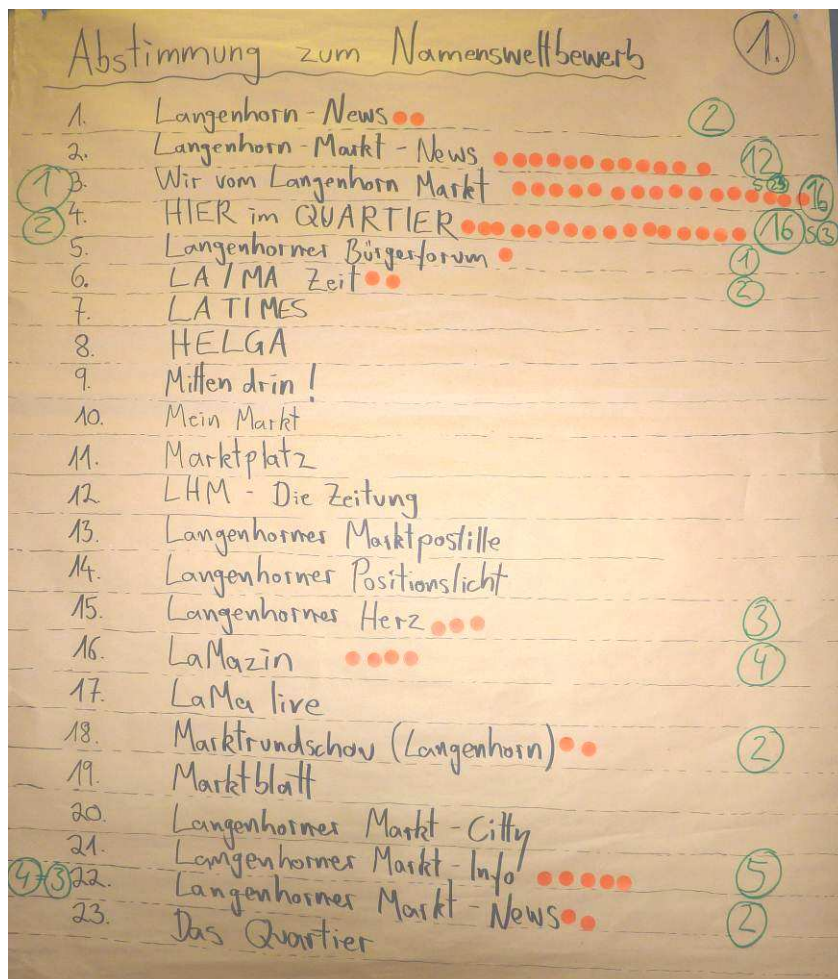 Abstimmung zum Namenswettbewerb 1.
1. Langenhorn-News 2
2. Langenhorn-Markt-News 12
1 3. Wir vom Langenhorn Markt 16
2 4. HIER im QUARTIER 16
5. Langenhorner Bürgerforum 1
6. LA/MA Zeit 2
7. LA TIMES
8. HELGA
9. Mitten drin!
10. Mein Markt
11. Marktplatz
12 LHM - Die Zeitung
13. Langenhorner Marktpostille
14. Langenhorner Positionslicht
15. Langenhorner Herz 3
16. LaMazin 4
17. LaMa live
18. Marktrundschau (Langenhorn) 2
19. Marktblatt
20. Langenhorner Markt-Citty
21. Langenhorner Markt-Info 5
22. Langenhorner Markt-News 2
23. Das Quartier